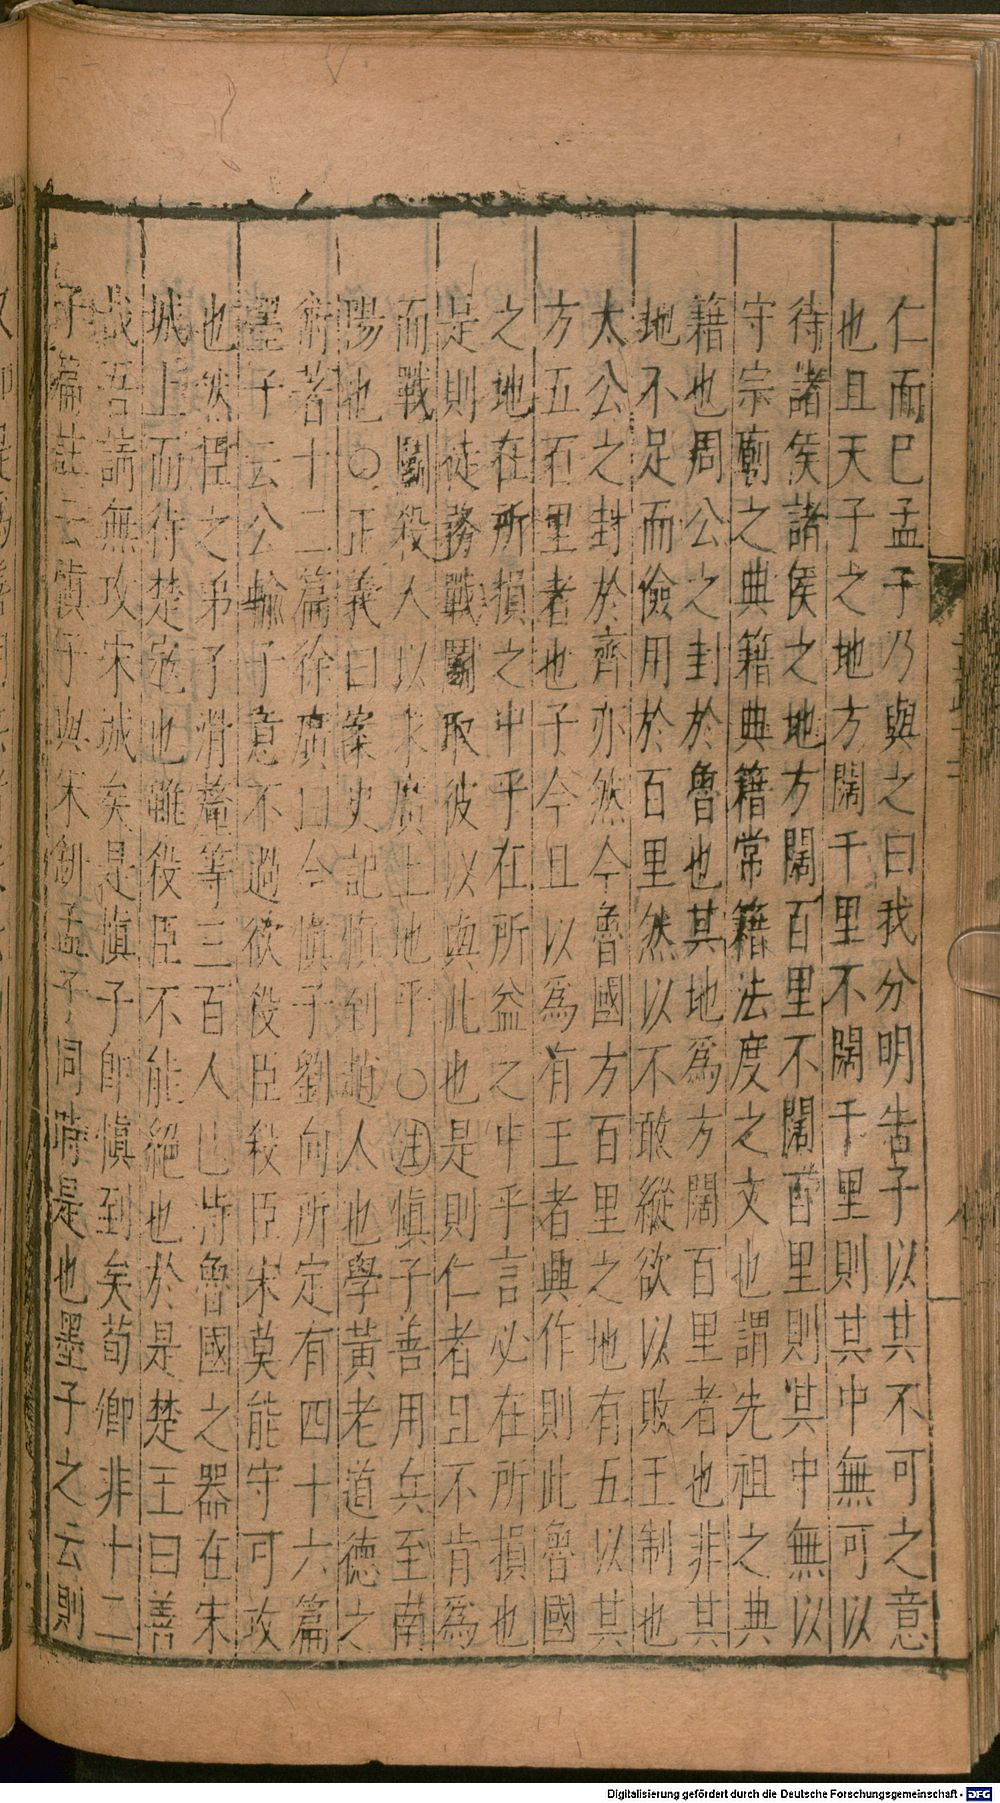 仁而已孟子乃與之曰我分明告子以其不可之意
也且天子之地方闊千里不闊千里則其中無可以
待諸侯諸侯之地方闊百里不闊百里則其中無以
守宗廟之典籍典籍常籍法度之文也謂先祖之典
籍也周公之封於魯也其地為方闊百里者也非其
地不足而儉用於百里然以不敢縱欲以敗王制也
太公之封於齊亦然今魯國方百里之地有五以其
方五百里者也子今且以爲有王者興作則此魯國
之地在所損之中乎在所益之中乎言必在所損也
是則徒務戰鬭取彼以與此也是則仁者且不肯爲
而戰鬭殺人以求廣土地乎○注慎子善用兵至南
陽也○正義曰案史記慎到趙人也學黃老道德之
術著十二篇徐廣曰今慎子劉向所定有四十六篇
墨子云公輸子意不過欲殺臣殺臣宋莫能守可攻
也然臣之弟子滑釐等三百人已持魯國之器在宋
城上而待楚寇也雖殺臣不能絕也於是楚王曰善
哉吾請無攻宋城矣是慎子即慎到矣荀卿非十二
子篇註云慎子與宋鈃孟子同時是也墨子之云則
Digitalisierung gefördert durch die Deutsche Forschungsgemeinschaft - DFG